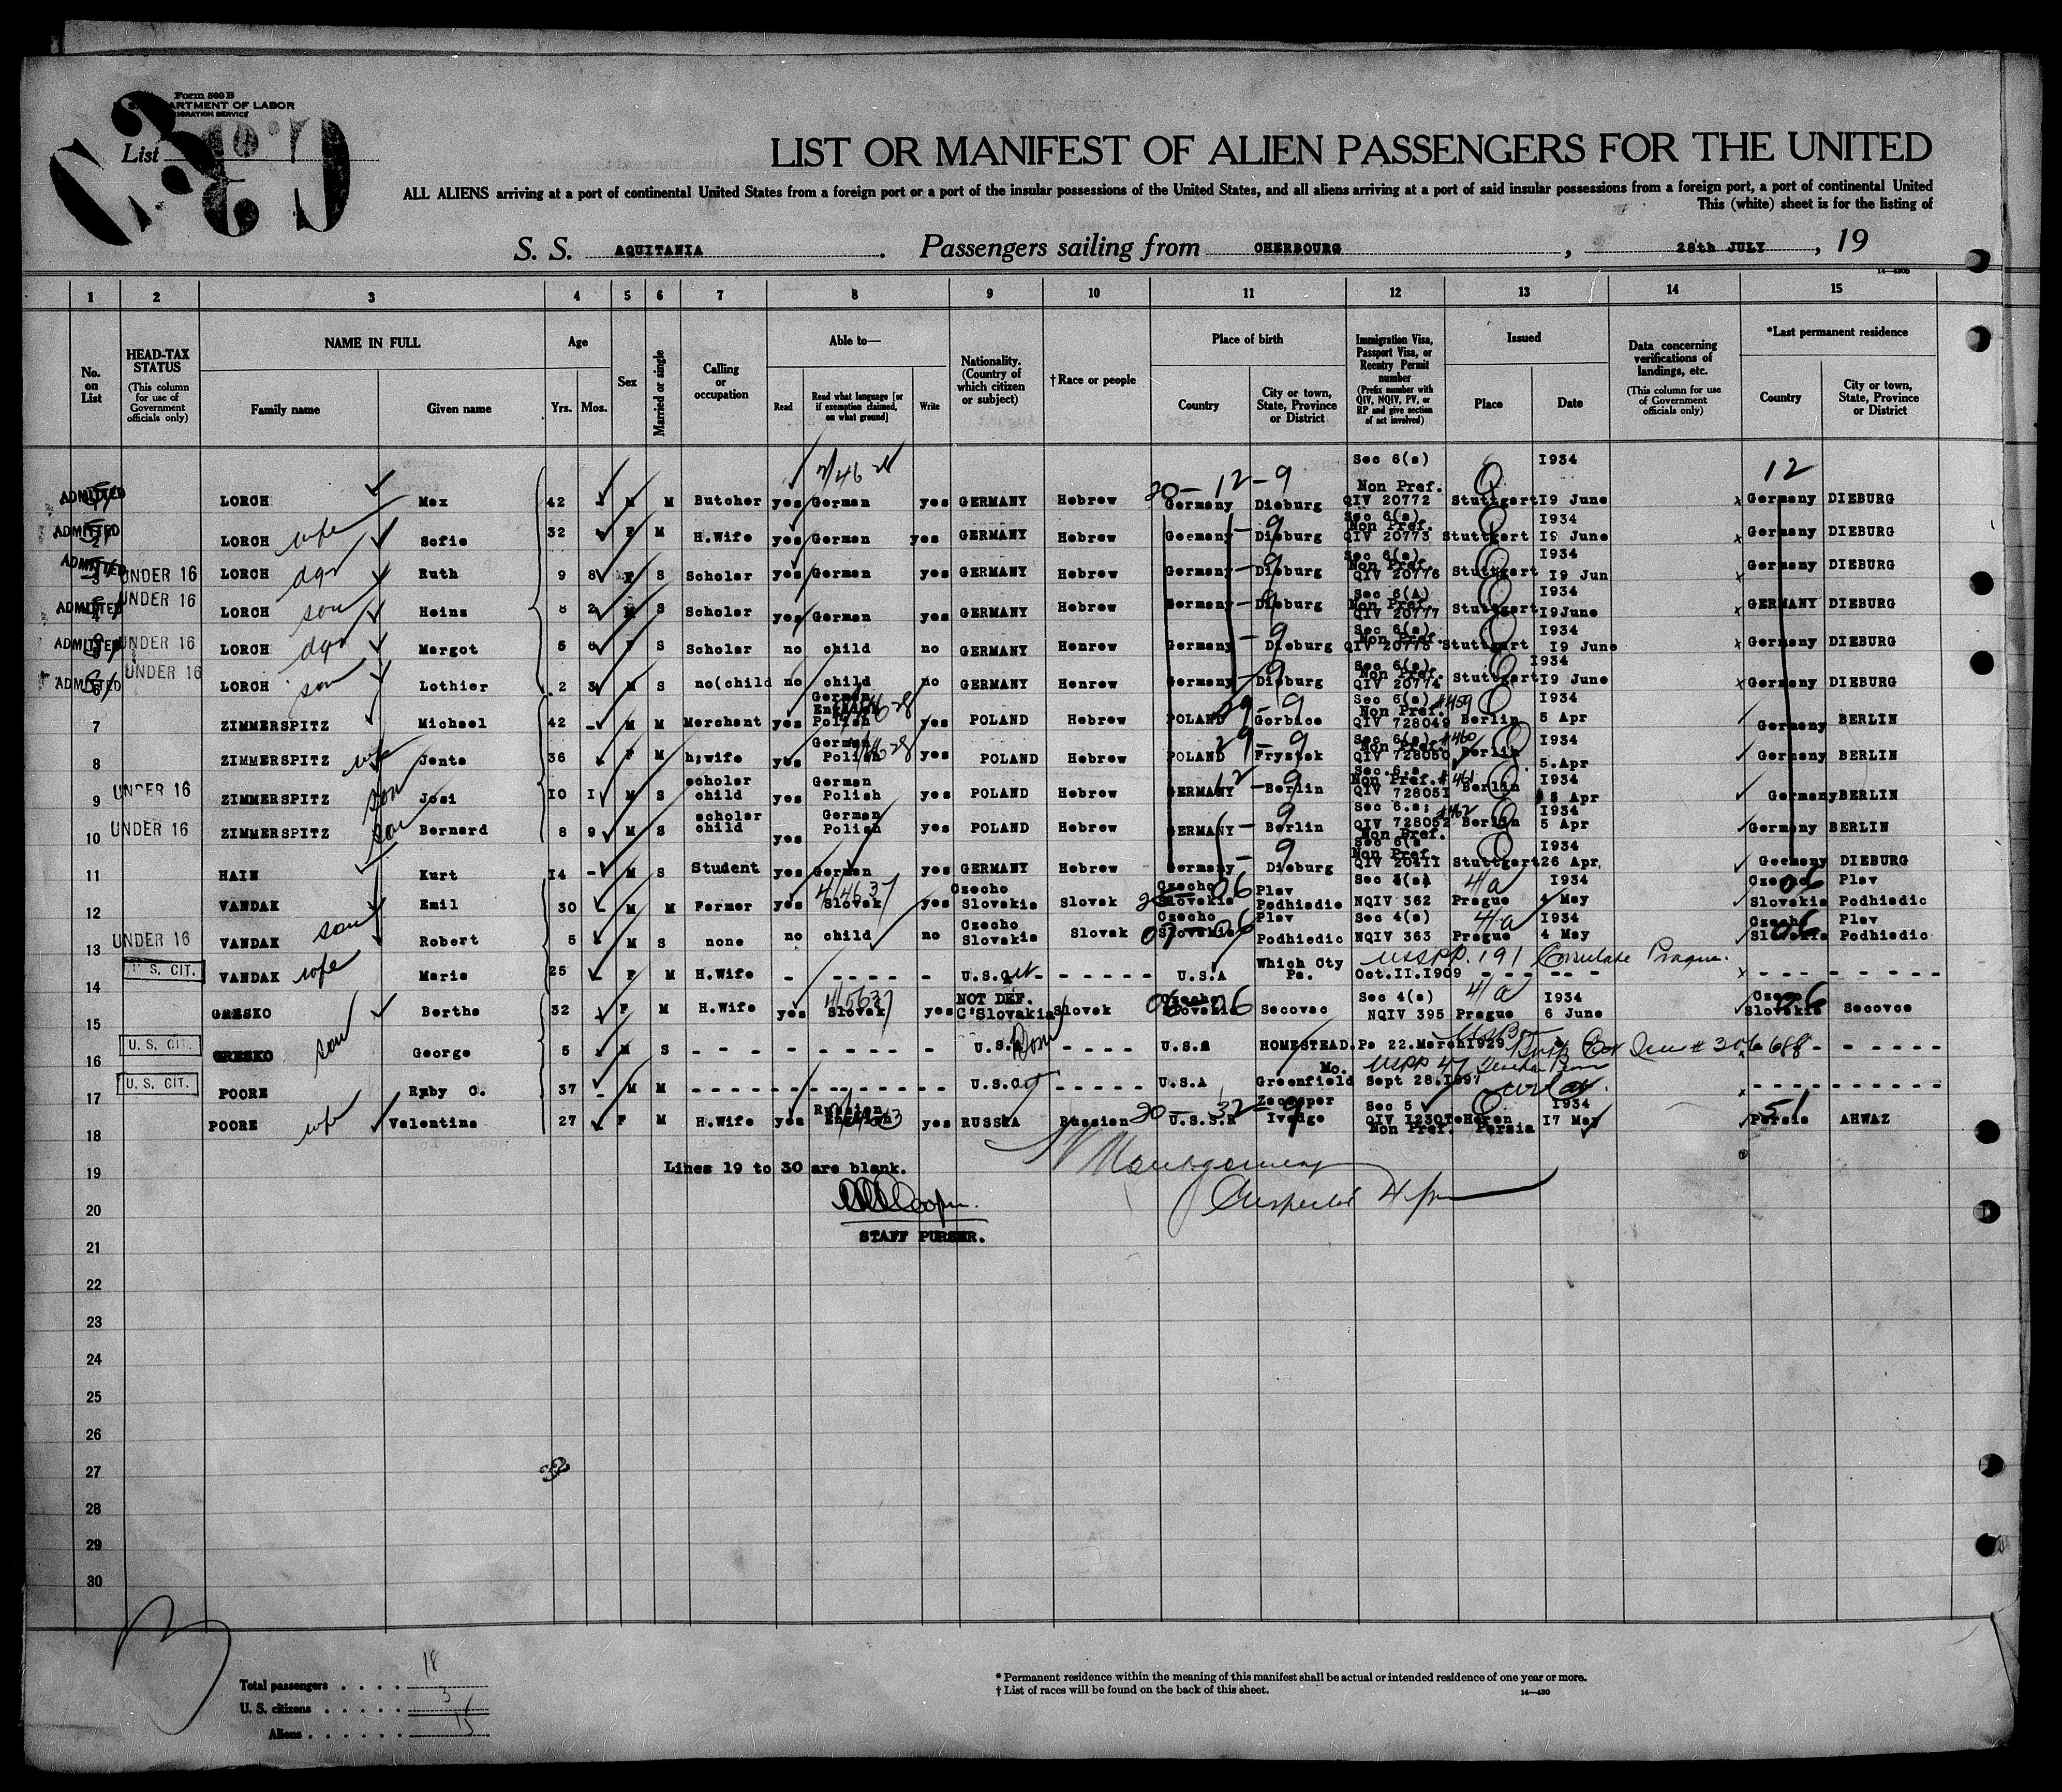 Form 500 B
ARTMENT OF LABOR
IGRATION SERVICE
List
LIST OR MANIFEST OF ALIEN PASSENGERS FOR THE UNITED
ALL ALIENS arriving at a port of continental United States from a foreign port or a port of the insular possessions of the United States, and all aliens arriving at a port of said insular possessions from a foreign port, a port of continental United
This (white) sheet is for the listing of
S. S. AQUITANIA. Passengers sailing from CHERBOURG, 28th JULY, 19
1 2 3 4 5 6 7 8 9 10 11 12 13 14 15
No. on List
HEAD-TAX STATUS (This column for use of Government officials only)
NAME IN FULL Family name Given name
Age Yrs. Mos.
Sex
Married or single
Calling or occupation
Able to— Read Read what language [or if exemption claimed, on what ground] Write
Nationality. (Country of which citizen or subject)
†Race or people
Place of birth Country City or town, State, Province or District
Immigration Visa, Passport Visa, or Reentry Permit number (Prefix number with QIV, NQIV, PV, or RP and give section of act involved)
Issued Place Date
Data concerning verifications of landings, etc. (This column for use of Government officials only)
*Last permanent residence Country City or town, State, Province or District
ADMITTED LORCH Max 42 M M Butcher yes German yes GERMANY Hebrew Germany Dieburg Sec 6(a) Non Pref. QIV 20772 Stuttgart 1934 I9 June Germany DIEBURG
ADMITTED 2 LORCH wife Sofie 32 F M H.Wife yes German yes GERMANY Hebrew Germany Dieburg Sec 6(a) Non Pref. QIV 20773 Stuttgart I934 I9 June Germany DIEBURG
ADMITTED 3 UNDER 16 LORCH Ruth 9 8 F S Scholar yes German yes GERMANY Hebrew Germany Dieburg Sec 6(a) Non Pref. QIV 20776 Stuttgart I934 I9 Jun Germany DIEBURG
ADMITTED 4 UNDER 16 LORCH son Heinz 8 2 M S Scholar yes German yes GERMANY Hebrew Germany Dieburg Sec 6(A) Non Pref. QIV 20777 Stuttgart I934 I9June GERMANY DIEBURG
ADMITTED 5 UNDER 16 LORCH Margot 5 6 F S Scholar no child no GERMANY Henrew Germany Dieburg Sec 6(a) Non Pref. QIV 20775 Stuttgart I934 I9 June Germany DIEBURG
ADMITTED 6 UNDER 16 LORCH son Lothier 2 3 M S no(child no child no GERMANY Henrew Germany Dieburg Sec 6(a) QIV 20774 Stuttgart I934 I9 June Germany DIEBURG
7 ZIMMERSPITZ Michael 42 - M M Merchant yes German English Polish yes POLAND Hebrew POLAND Gorbice Sec 6(a) #459 Non Pref. QIV 728049 Berlin I934 5 Apr Germany BERLIN
8 ZIMMERSPITZ wife Jente 36 F M h;wife yes German Polish yes POLAND Hebrew POLAND Frystak Sec 6(a) #460 Non Pref. QIV 728050 Berlin I934 5.Apr Germany BERLIN
9 UNDER 16 ZIMMERSPITZ son Josi IO I M S scholar child yes German Polish yes POLAND Hebrew GERMANY Berlin Sec.6.a Non Pref. #461 QIV 72805I Berlin I934 5 Apr Germany BERLIN
10 UNDER 16 ZIMMERSPITZ son Bernard 8 9 M S scholar child yes German Polish yes POLAND Hebrew GERMANY Berlin Sec 6.a; #462 QIV 728052 Non Pref. Berlin I934 5 Apr Germany BERLIN
11 HAIN Kurt I4 - M S Student yes German yes GERMANY Hebrew Germany Dieburg Sec 6(a Non Pref. QIV 20411 Stuttgart I934 26 Apr. Germany DIEBURG
12 VANDAK Emil 30 - M M Farmer yes Slovak yes Czecho Slovakia Slovak Czecho Slovakia Plav Podhiedie NQIV 362 Prague I934 4 May Czecho Slovakia Plav Podhiedic
13 UNDER 16 VANDAK son Robert 5 M S none no child no Czecho Slovakia Slovak Czecho Slovakia Plav Podhiedic Sec 4(a) NQIV 363 Prague I934 4 May Czecho Slovakia Plav Podhiedic
14 U. S. CIT. VANDAK wife Marie 25 F M H.Wife U.S.Cit U.S.A Which Cty Pa. Oct.II.I909 USPP. 191 Consulate Prague.
15 GRESKO Bertha 32 F M H.Wife yes Slovak yes NOT DEF. C'Slovakia Slovak Czecho Slovakia Secovac Sec 4(a) 4/a NQIV 395 Prague I934 6 June Czecho Slovakia Secovce
16 U. S. CIT. GRESKO son George 5 M S U.S. U.S.A HOMESTEAD.Pa 22.March1929
17 U. S. CIT. POORE Ruby C. 37 - M M U.S.Cit U.S.A Mo. Greenfield Sept 28.I897
18 POORE wife Valentina 27 F M H.Wife yes Russian English yes RUSSIA Russian U.S.S.R Ivedge Sec 5 QIV I230 Non Pref. TeHeran Persia I934 I7 May Persia AHWAZ
19 Lines 19 to 30 are blank.
Montgomery
Inspector
20
STAFF PURSER.
21
22
23
24
25
26
27
32
28
29
30
Total passengers . . . . 18
U. S. citizens . . . . . 3
Aliens . . . . . . 15
* Permanent residence within the meaning of this manifest shall be actual or intended residence of one year or more.
† List of races will be found on the back of this sheet.
14—430